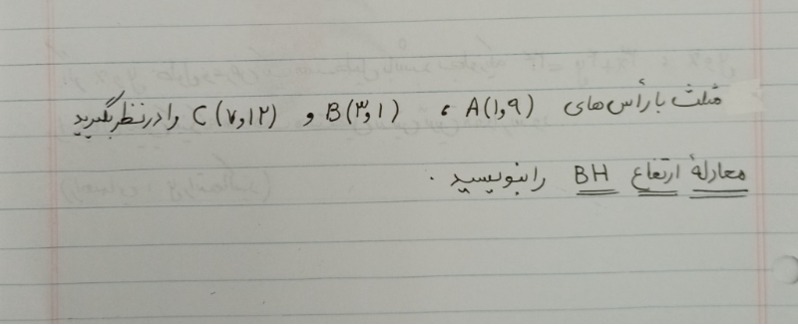 مثلث با رأس‌های A(۱,۹) ، B(۳,۱) و C(۷,۱۲) را در نظر بگیرید
معادلهٔ ارتفاع BH را بنویسید .